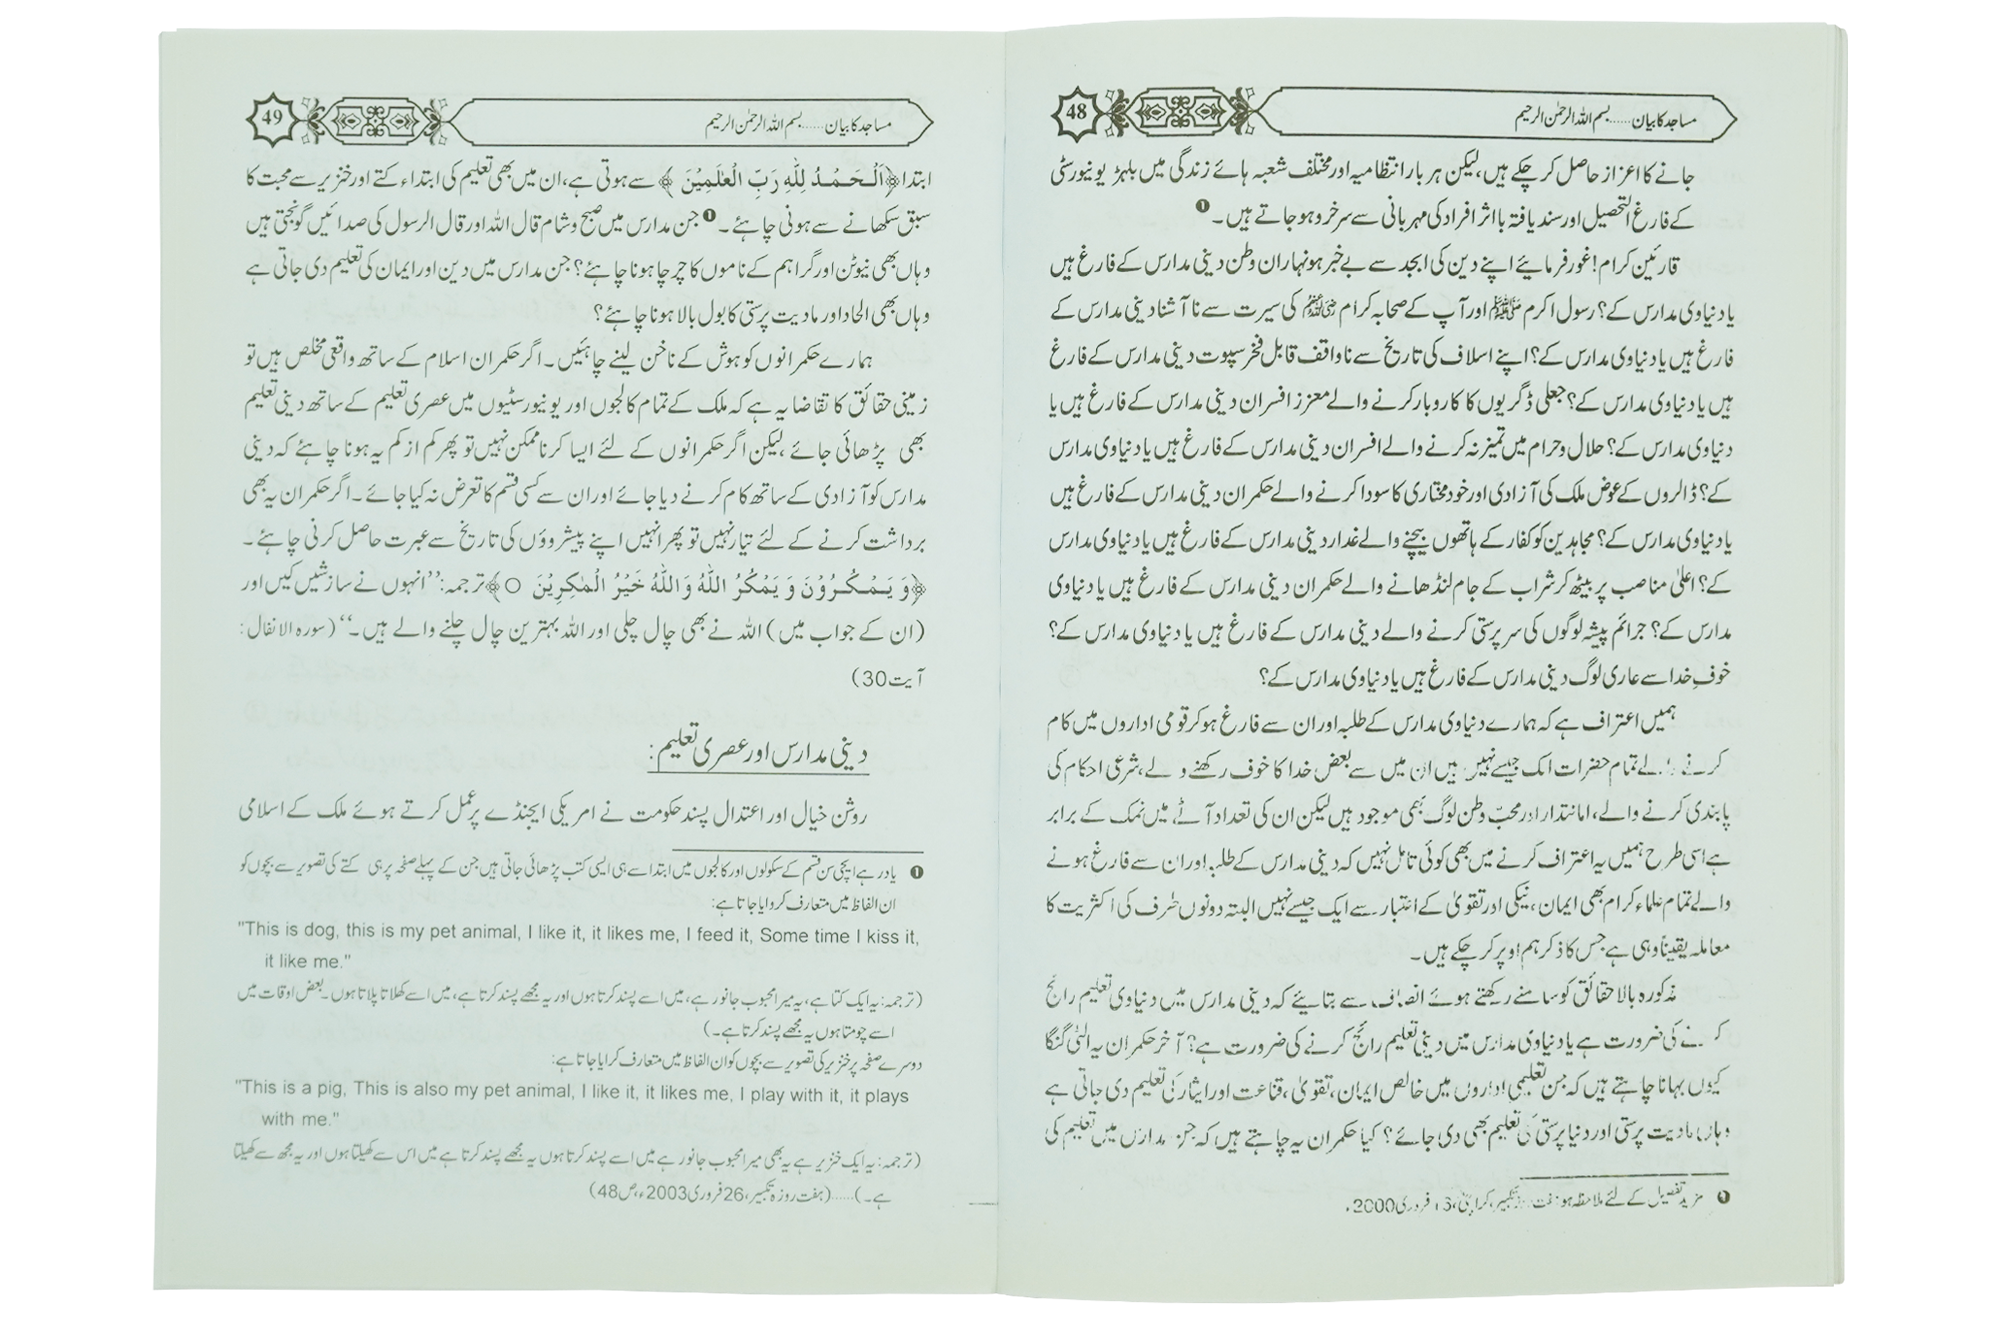 مساجد کا بیان......بسم اللہ الرحمٰن الرحیم
48
جانے کا اعزاز حاصل کر چکے ہیں، لیکن ہر بار انتظامیہ اور مختلف شعبہ ہائے زندگی میں بلہڑ یونیورسٹی
کے فارغ التحصیل اور سند یافتہ با اثر افراد کی مہربانی سے سرخرو ہو جاتے ہیں۔❶
قارئین کرام! غور فرمائیے اپنے دین کی ابجد سے بے خبر ہونہاران وطن دینی مدارس کے فارغ ہیں
یا دنیاوی مدارس کے؟ رسول اکرم ﷺ اور آپ کے صحابہ کرام کی سیرت سے نا آشنا دینی مدارس کے
فارغ ہیں یا دنیاوی مدارس کے؟ اپنے اسلاف کی تاریخ سے ناواقف قابل فخر سپوت دینی مدارس کے فارغ
ہیں یا دنیاوی مدارس کے؟ جعلی ڈگریوں کا کاروبار کرنے والے معزز افسران دینی مدارس کے فارغ ہیں یا
دنیاوی مدارس کے؟ حلال وحرام میں تمیز نہ کرنے والے افسران دینی مدارس کے فارغ ہیں یا دنیاوی مدارس
کے؟ ڈالروں کے عوض ملک کی آزادی اور خود مختاری کا سودا کرنے والے حکمران دینی مدارس کے فارغ ہیں
یا دنیاوی مدارس کے؟ مجاہدین کو کفار کے ہاتھوں بیچنے والے غدار دینی مدارس کے فارغ ہیں یا دنیاوی مدارس
کے؟ اعلیٰ مناصب پر بیٹھ کر شراب کے جام لنڈھانے والے حکمران دینی مدارس کے فارغ ہیں یا دنیاوی
مدارس کے؟ جرائم پیشہ لوگوں کی سرپرستی کرنے والے دینی مدارس کے فارغ ہیں یا دنیاوی مدارس کے؟
خوفِ خدا سے عاری لوگ دینی مدارس کے فارغ ہیں یا دنیاوی مدارس کے؟
ہمیں اعتراف ہے کہ ہمارے دنیاوی مدارس کے طلبہ اور ان سے فارغ ہو کر قومی اداروں میں کام
کرنے والے تمام حضرات ایک جیسے نہیں ہیں ان میں سے بعض خدا کا خوف رکھنے والے، شرعی احکام کی
پابندی کرنے والے، امانتدار اور محبّ وطن لوگ بھی موجود ہیں لیکن ان کی تعداد آٹے میں نمک کے برابر
ہے اسی طرح ہمیں یہ اعتراف کرنے میں بھی کوئی تامل نہیں کہ دینی مدارس کے طلبہ اور ان سے فارغ ہونے
والے تمام علماء کرام بھی ایمان، نیکی اور تقویٰ کے اعتبار سے ایک جیسے نہیں البتہ دونوں طرف کی اکثریت کا
معاملہ یقیناً وہی ہے جس کا ذکر ہم اوپر کر چکے ہیں۔
مذکورہ بالا حقائق کو سامنے رکھتے ہوئے انصاف سے بتائیے کہ دینی مدارس میں دنیاوی تعلیم رائج
کرنے کی ضرورت ہے یا دنیاوی مدارس میں دینی تعلیم رائج کرنے کی ضرورت ہے؟ آخر حکمران یہ الٹی گنگا
کیوں بہانا چاہتے ہیں کہ جن تعلیمی اداروں میں خالص ایمان، تقویٰ، قناعت اور ایثار کی تعلیم دی جاتی ہے
وہاں مادیت پرستی اور دنیا پرستی کی تعلیم بھی دی جائے؟ کیا حکمران یہ چاہتے ہیں کہ جن مدارس میں تعلیم کی
❶ مزید تفصیل کے لئے ملاحظہ ہو: ہفت روزہ تکبیر، کراچی، 16 فروری 2000ء
مساجد کا بیان......بسم اللہ الرحمٰن الرحیم
49
ابتدا ﴿اَلْحَمْدُ لِلّٰهِ رَبِّ الْعٰلَمِيْنَ﴾ سے ہوتی ہے، ان میں بھی تعلیم کی ابتداء کتے اور خنزیر سے محبت کا
سبق سکھانے سے ہونی چاہئے۔❶ جن مدارس میں صبح و شام قال اللہ اور قال الرسول کی صدائیں گونجتی ہیں
وہاں بھی نیوٹن اور گراہم کے ناموں کا چرچا ہونا چاہئے؟ جن مدارس میں دین اور ایمان کی تعلیم دی جاتی ہے
وہاں بھی الحاد اور مادیت پرستی کا بول بالا ہونا چاہئے؟
ہمارے حکمرانوں کو ہوش کے ناخن لینے چاہئیں۔ اگر حکمران اسلام کے ساتھ واقعی مخلص ہیں تو
زمینی حقائق کا تقاضا یہ ہے کہ ملک کے تمام کالجوں اور یونیورسٹیوں میں عصری تعلیم کے ساتھ دینی تعلیم
بھی پڑھائی جائے، لیکن اگر حکمرانوں کے لئے ایسا کرنا ممکن نہیں تو پھر کم از کم یہ ہونا چاہئے کہ دینی
مدارس کو آزادی کے ساتھ کام کرنے دیا جائے اور ان سے کسی قسم کا تعرض نہ کیا جائے۔ اگر حکمران یہ بھی
برداشت کرنے کے لئے تیار نہیں تو پھر انہیں اپنے پیشروؤں کی تاریخ سے عبرت حاصل کرنی چاہئے۔
﴿وَ يَمْكُرُوْنَ وَ يَمْكُرُ اللّٰهُ وَ اللّٰهُ خَيْرُ الْمٰكِرِيْنَ ○﴾ ترجمہ: ’’انہوں نے سازشیں کیں اور
(ان کے جواب میں) اللہ نے بھی چال چلی اور اللہ بہترین چال چلنے والے ہیں۔‘‘ (سورہ الانفال:
آیت 30)
دینی مدارس اور عصری تعلیم:
روشن خیال اور اعتدال پسند حکومت نے امریکی ایجنڈے پر عمل کرتے ہوئے ملک کے اسلامی
❶ یاد رہے ایچی سن قسم کے سکولوں اور کالجوں میں ابتدا سے ہی ایسی کتب پڑھائی جاتی ہیں جن کے پہلے صفحہ پر ہی کتے کی تصویر سے بچوں کو
ان الفاظ میں متعارف کروایا جاتا ہے:
"This is dog, this is my pet animal, I like it, it likes me, I feed it, Some time I kiss it,
it like me."
(ترجمہ: یہ ایک کتا ہے، یہ میرا محبوب جانور ہے، میں اسے پسند کرتا ہوں اور یہ مجھے پسند کرتا ہے، میں اسے کھلاتا پلاتا ہوں۔ بعض اوقات میں
اسے چومتا ہوں یہ مجھے پسند کرتا ہے۔)
دوسرے صفحہ پر خنزیر کی تصویر سے بچوں کو ان الفاظ میں متعارف کرایا جاتا ہے:
"This is a pig, This is also my pet animal, I like it, it likes me, I play with it, it plays
with me."
(ترجمہ: یہ ایک خنزیر ہے یہ بھی میرا محبوب جانور ہے میں اسے پسند کرتا ہوں یہ مجھے پسند کرتا ہے میں اس سے کھیلتا ہوں اور یہ مجھ سے کھیلتا
ہے۔)......(ہفت روزہ تکبیر، 26 فروری 2003ء، ص 48)